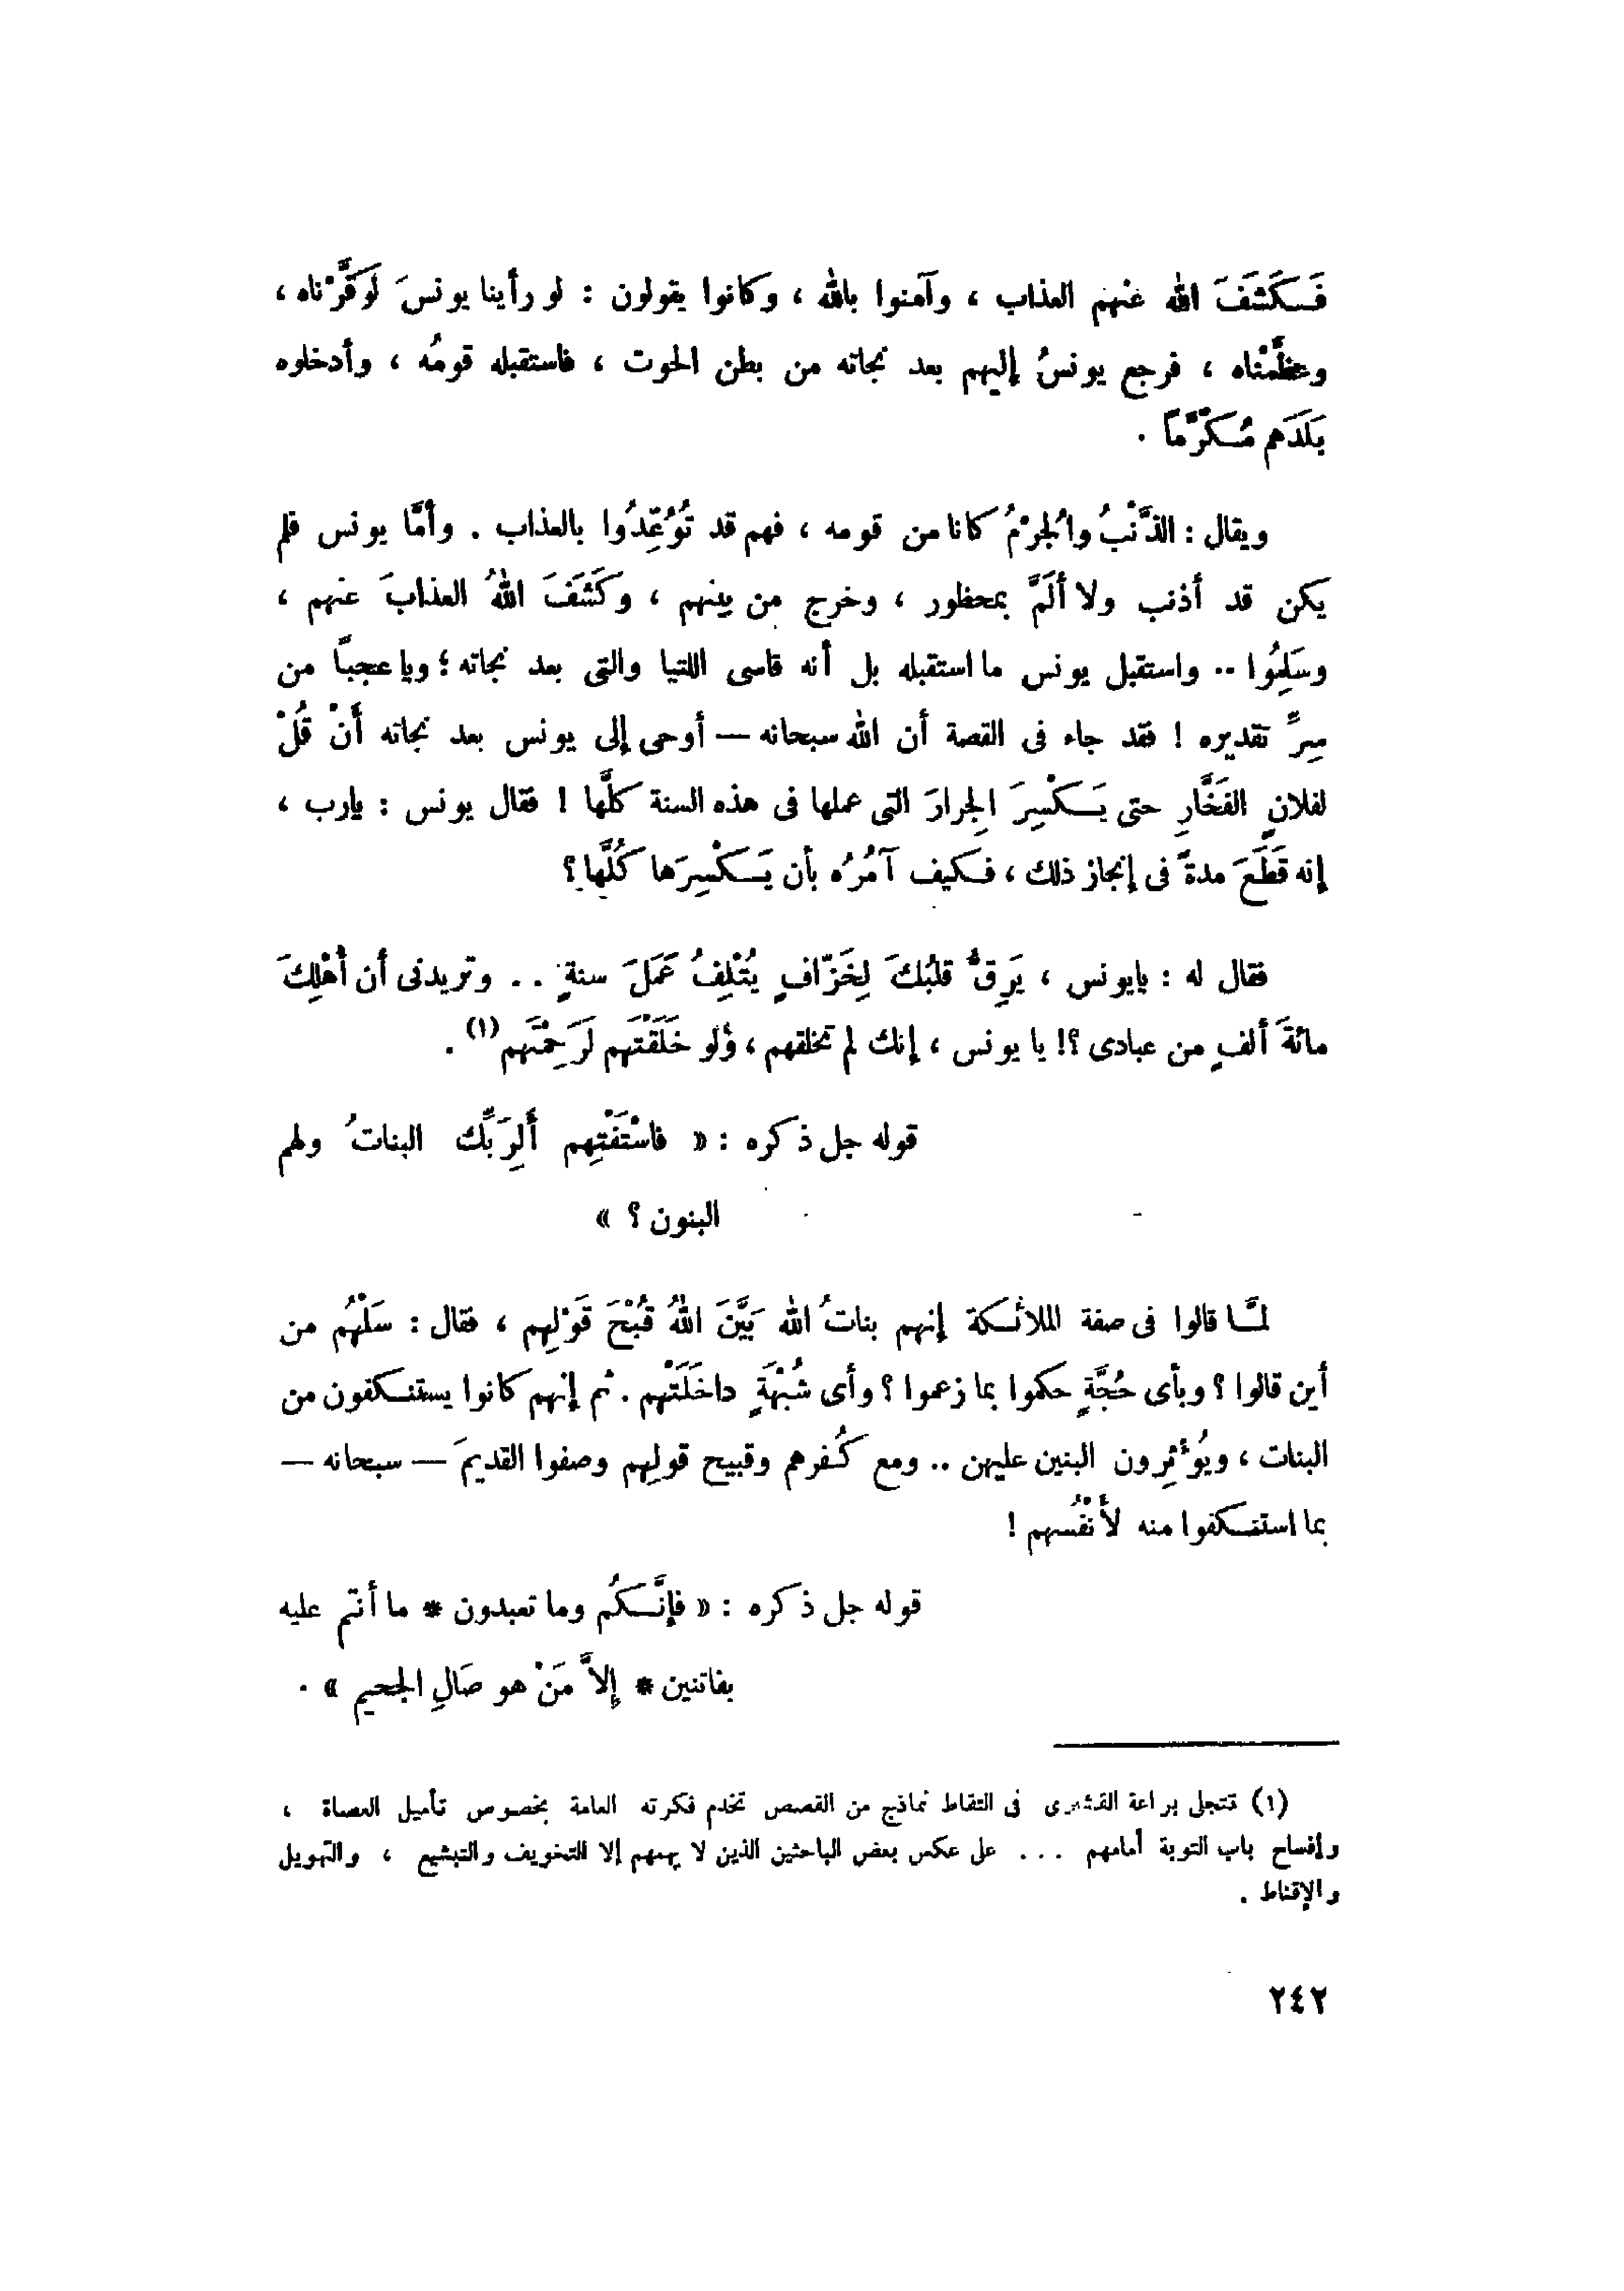 فَكَشَفَ الله عنْهم العذاب ، وآمنوا بالله ، وكانوا يقولون : لو رأينا يونسَ لَوَقَّرْناه ،
وعظَّمْناه ، فرجع يونسُ إليهم بعد نجاته من بطن الحوت ، فاستقبله قومُه ، وأدخلوه
بَلَدَهم مُكَرَّماً .
ويقال : الذَّنْبُ والُجرْمُ كانا من قومه ، فهم قد تُوُعِّدُوا بالعذاب . وأمَّا يونس فلم
يكن قد أذنب ولا أَلَمَّ بمحظور ، وخرج من بينهم ، وكَشَفَ اللهُ العذابَ عنهم ،
وسَلِمُوا .. واستقبل يونس ما استقبله بل أنه قاسى اللتيا والتى بعد نجاته ؛ ويا عجباً من
سِرِّ تقديره ! فقد جاء فى القصة أن الله سبحانه — أوحى إلى يونس بعد نجاته أَنْ قُلْ
لفلانٍ الفَخَّارِ حتى يَكْسِرَ الِجرارَ التى عملها فى هذه السنة كلَّها ! فقال يونس : يارب ،
إنه قَطَعَ مدةً فى إنجاز ذلك ، فكيف آمُرُه بأن يَكْسِرَها كُلَّها ؟
فقال له : يايونس ، يَرِقُّ قلبُكَ لِخَزَّافٍ يُتْلِفُ عَمَلَ سنةٍ .. وتريدنى أن أُهْلِكَ
مائةَ ألفٍ من عبادى ؟! يا يونس ، إنك لم تخلقهم ، ولو خَلَقْتَهم لَرَحِمْتَهم (١) .
قوله جل ذكره : « فاسْتَفْتِهم أَلِرَبِّك البناتُ ولهم
البنون ؟ »
لمَّا قالوا فى صفة الملائكة إنهم بناتُ الله بَيَّنَ اللهُ قُبْحَ قَوْلِهم ، فقال : سَلْهُم من
أين قالوا ؟ وبأى حُجَّةٍ حكموا بما زعموا ؟ وأى شُبْهَةٍ داخَلَتْهم . ثم إنهم كانوا يستنكفون من
البنات ، ويُؤثِرون البنين عليهن .. ومع كُفرهم وقبيح قولِهم وصفوا القديمَ — سبحانه —
بما استنكفوا منه لأَنْفُسهم !
قوله جل ذكره : « فإنَّكُم وما تعبدون * ما أنتم عليه
بفاتنين * إلاَّ مَنْ هو صَالِ الجحيم » .
(١) تتجلى براعة القشيرى فى التقاط نماذج من القصص تخدم فكرته العامة بخصوص تأميل العصاة ،
وإفساح باب التوبة أمامهم ... على عكس بعض الباحثين الذين لا يهمهم إلا التخويف والتبشيع ، والتهويل
والإقناط .
٢٤٢